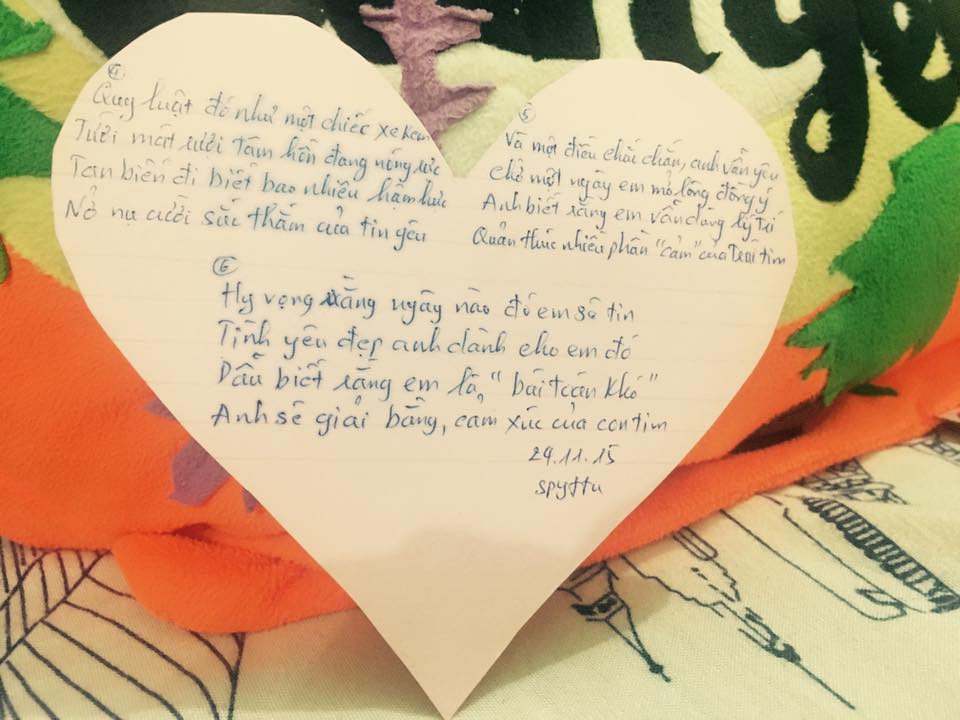 4.
Quy luật đó như một chiếc xe kem
Tưới mát rượi tâm hồn đang nóng rực
Tan biến đi biết bao nhiêu hậm hực
Nở nụ cười sắc thắm của tin yêu
5
Và một điều chắc chắn, anh vẫn yêu
Chờ một ngày em mở lòng đồng ý
Anh biết rằng em vẫn dùng lý trí
Quản thúc nhiều phần "cảm" của trái tim
6
Hy vọng rằng ngày nào đó em sẽ tin
Tình yêu đẹp anh dành cho em đó
Dẫu biết rằng em là "bài toán khó"
Anh sẽ giải bằng, cảm xúc của con tim
29.11.15
spyttu